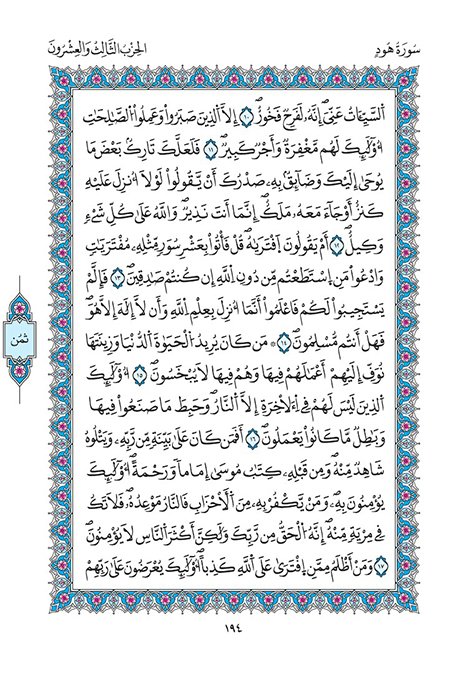 سُورَةُ هُودٍ
الحِزْبُ الثَّالِثُ وَالْعِشْرُونَ
اَ۬لسَّيِّـَٔاتُ عَنِّيَۖ إِنَّهُۥ لَفَرِحٞ فَخُورٌۖ ١٠ اِلَّا اَ۬لذِينَ صَبَرُواْ وَعَمِلُواْ اُ۬لصَّٰلِحَٰتِ
أُوْلَٰٓئِكَ لَهُم مَّغْفِرَةٞ وَأَجْرٞ كَبِيرٞۖ ١١ فَلَعَلَّكَ تَارِكُۢ بَعْضَ مَا
يُوح۪يٰٓ إِلَيْكَ وَضَآئِقُۢ بِهِۦ صَدْرُكَ أَنْ يَّقُولُواْ لَوْلَآ أُنزِلَ عَلَيْهِ
كَنزٌ اَوْ جَآءَ مَعَهُۥ مَلَكٌۖ اِنَّمَآ أَنتَ نَذِيرٞۖ وَاللَّهُ عَلَيٰ كُلِّ شَےْءٖ
وَكِيلٌۖ ١٢ اَمْ يَقُولُونَ اَ۪فْتَر۪يٰهُۖ قُلْ فَاتُواْ بِعَشْرِ سُوَرٖ مِّثْلِهِۦ مُفْتَرَيَٰتٖ
وَادْعُواْ مَنِ اِ۪سْتَطَعْتُم مِّن دُونِ اِ۬للَّهِ إِن كُنتُمْ صَٰدِقِينَۖ ١٣ فَإِلَّمْ
يَسْتَجِيبُواْ لَكُمْ فَاعْلَمُوٓاْ أَنَّمَآ أُنزِلَ بِعِلْمِ اِ۬للَّهِ وَأَن لَّآ إِلَٰهَ إِلَّا هُوَۖ
فَهَلَ اَنتُم مُّسْلِمُونَۖ ١٤ ۞ مَن كَانَ يُرِيدُ اُ۬لْحَيَوٰةَ اَ۬لدُّنْي۪ا وَزِينَتَهَا
نُوَفِّ إِلَيْهِمُۥٓ أَعْمَٰلَهُمْ فِيهَا وَهُمْ فِيهَا لَا يُبْخَسُونَۖ ١٥ أُوْلَٰٓئِكَ
اَ۬لذِينَ لَيْسَ لَهُمْ فِے اِ۬لَاخِرَةِ إِلَّا اَ۬لنَّارُۖ وَحَبِطَ مَا صَنَعُواْ فِيهَا
وَبَٰطِلٞ مَّا كَانُواْ يَعْمَلُونَۖ ١٦ أَفَمَن كَانَ عَلَيٰ بَيِّنَةٖ مِّن رَّبِّهِۦ وَيَتْلُوهُ
شَاهِدٞ مِّنْهُۖ وَمِن قَبْلِهِۦ كِتَٰبُ مُوس۪يٰٓ إِمَاماٗ وَرَحْمَةًۖ اُوْلَٰٓئِكَ
يُومِنُونَ بِهِۦۖ وَمَنْ يَّكْفُرْ بِهِۦ مِنَ اَ۬لَاحْزَابِ فَالنَّارُ مَوْعِدُهُۥۖ فَلَا تَكُ
فِے مِرْيَةٖ مِّنْهُۖ إِنَّهُ اُ۬لْحَقُّ مِن رَّبِّكَ وَلَٰكِنَّ أَكْثَرَ اَ۬لنَّاسِ لَا يُومِنُونَۖ
١٧ وَمَنَ اَظْلَمُ مِمَّنِ اِ۪فْتَر۪يٰ عَلَي اَ۬للَّهِ كَذِباًۖ اُوْلَٰٓئِكَ يُعْرَضُونَ عَلَيٰ رَبِّهِمْ
ثُمُن
١٩٤